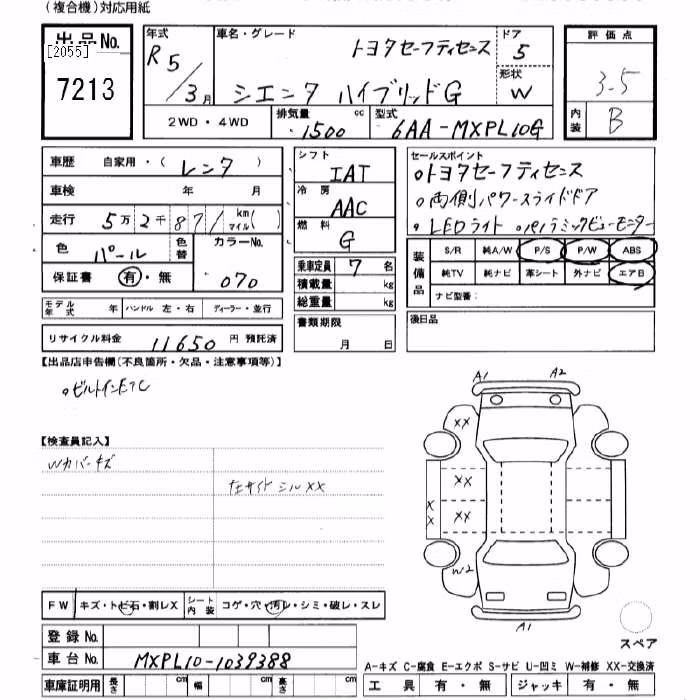 (複合機)対応用紙
出品No.
[2055]
7213
年式
R5/3月
車名・グレード
トヨタセーフティセンス
シエンタ ハイブリッドG
ドア
5
形状
W
評価点
3.5
内装
B
2WD・4WD
排気量 cc
1500
型式
6AA-MXPL10G
車歴 自家用・( レンタ )
車検 年 月
走行 5万2千871 km マイル( )
色 パール 色替
カラーNo.
070
保証書 有・無
モデル年式 年 ハンドル 左・右 ディーラー・並行
リサイクル料金 11650 円 預託済
シフト
IAT
冷房
AAC
燃料
G
乗車定員 7 名
積載量 kg
総重量 kg
書類期限
月 日
セールスポイント
○トヨタセーフティセンス
○両側パワースライドドア
○LEDライト ○パノラミックビューモニター
装備品
S/R 純A/W P/S P/W ABS
純TV 純ナビ 革シート 外ナビ エアB
ナビ型番:
後日品
【出品店申告欄(不良箇所・欠品・注意事項等)】
○ビルトインETC
【検査員記入】
Wカバーキズ
左サイドシルXX
A1 A2
XX
XX
XX
XX
W2
A1
スペア
FW キズ・トビ石・割レX シート内装 コゲ・穴・汚レ・シミ・破レ・スレ
登録No.
車台No. MXPL10-1039388
車庫証明用 長さ cm 幅 cm 高さ cm
A-キズ C-腐食 E-エクボ S-サビ U-凹ミ W-補修 XX-交換済
工具 有・無 ジャッキ 有・無